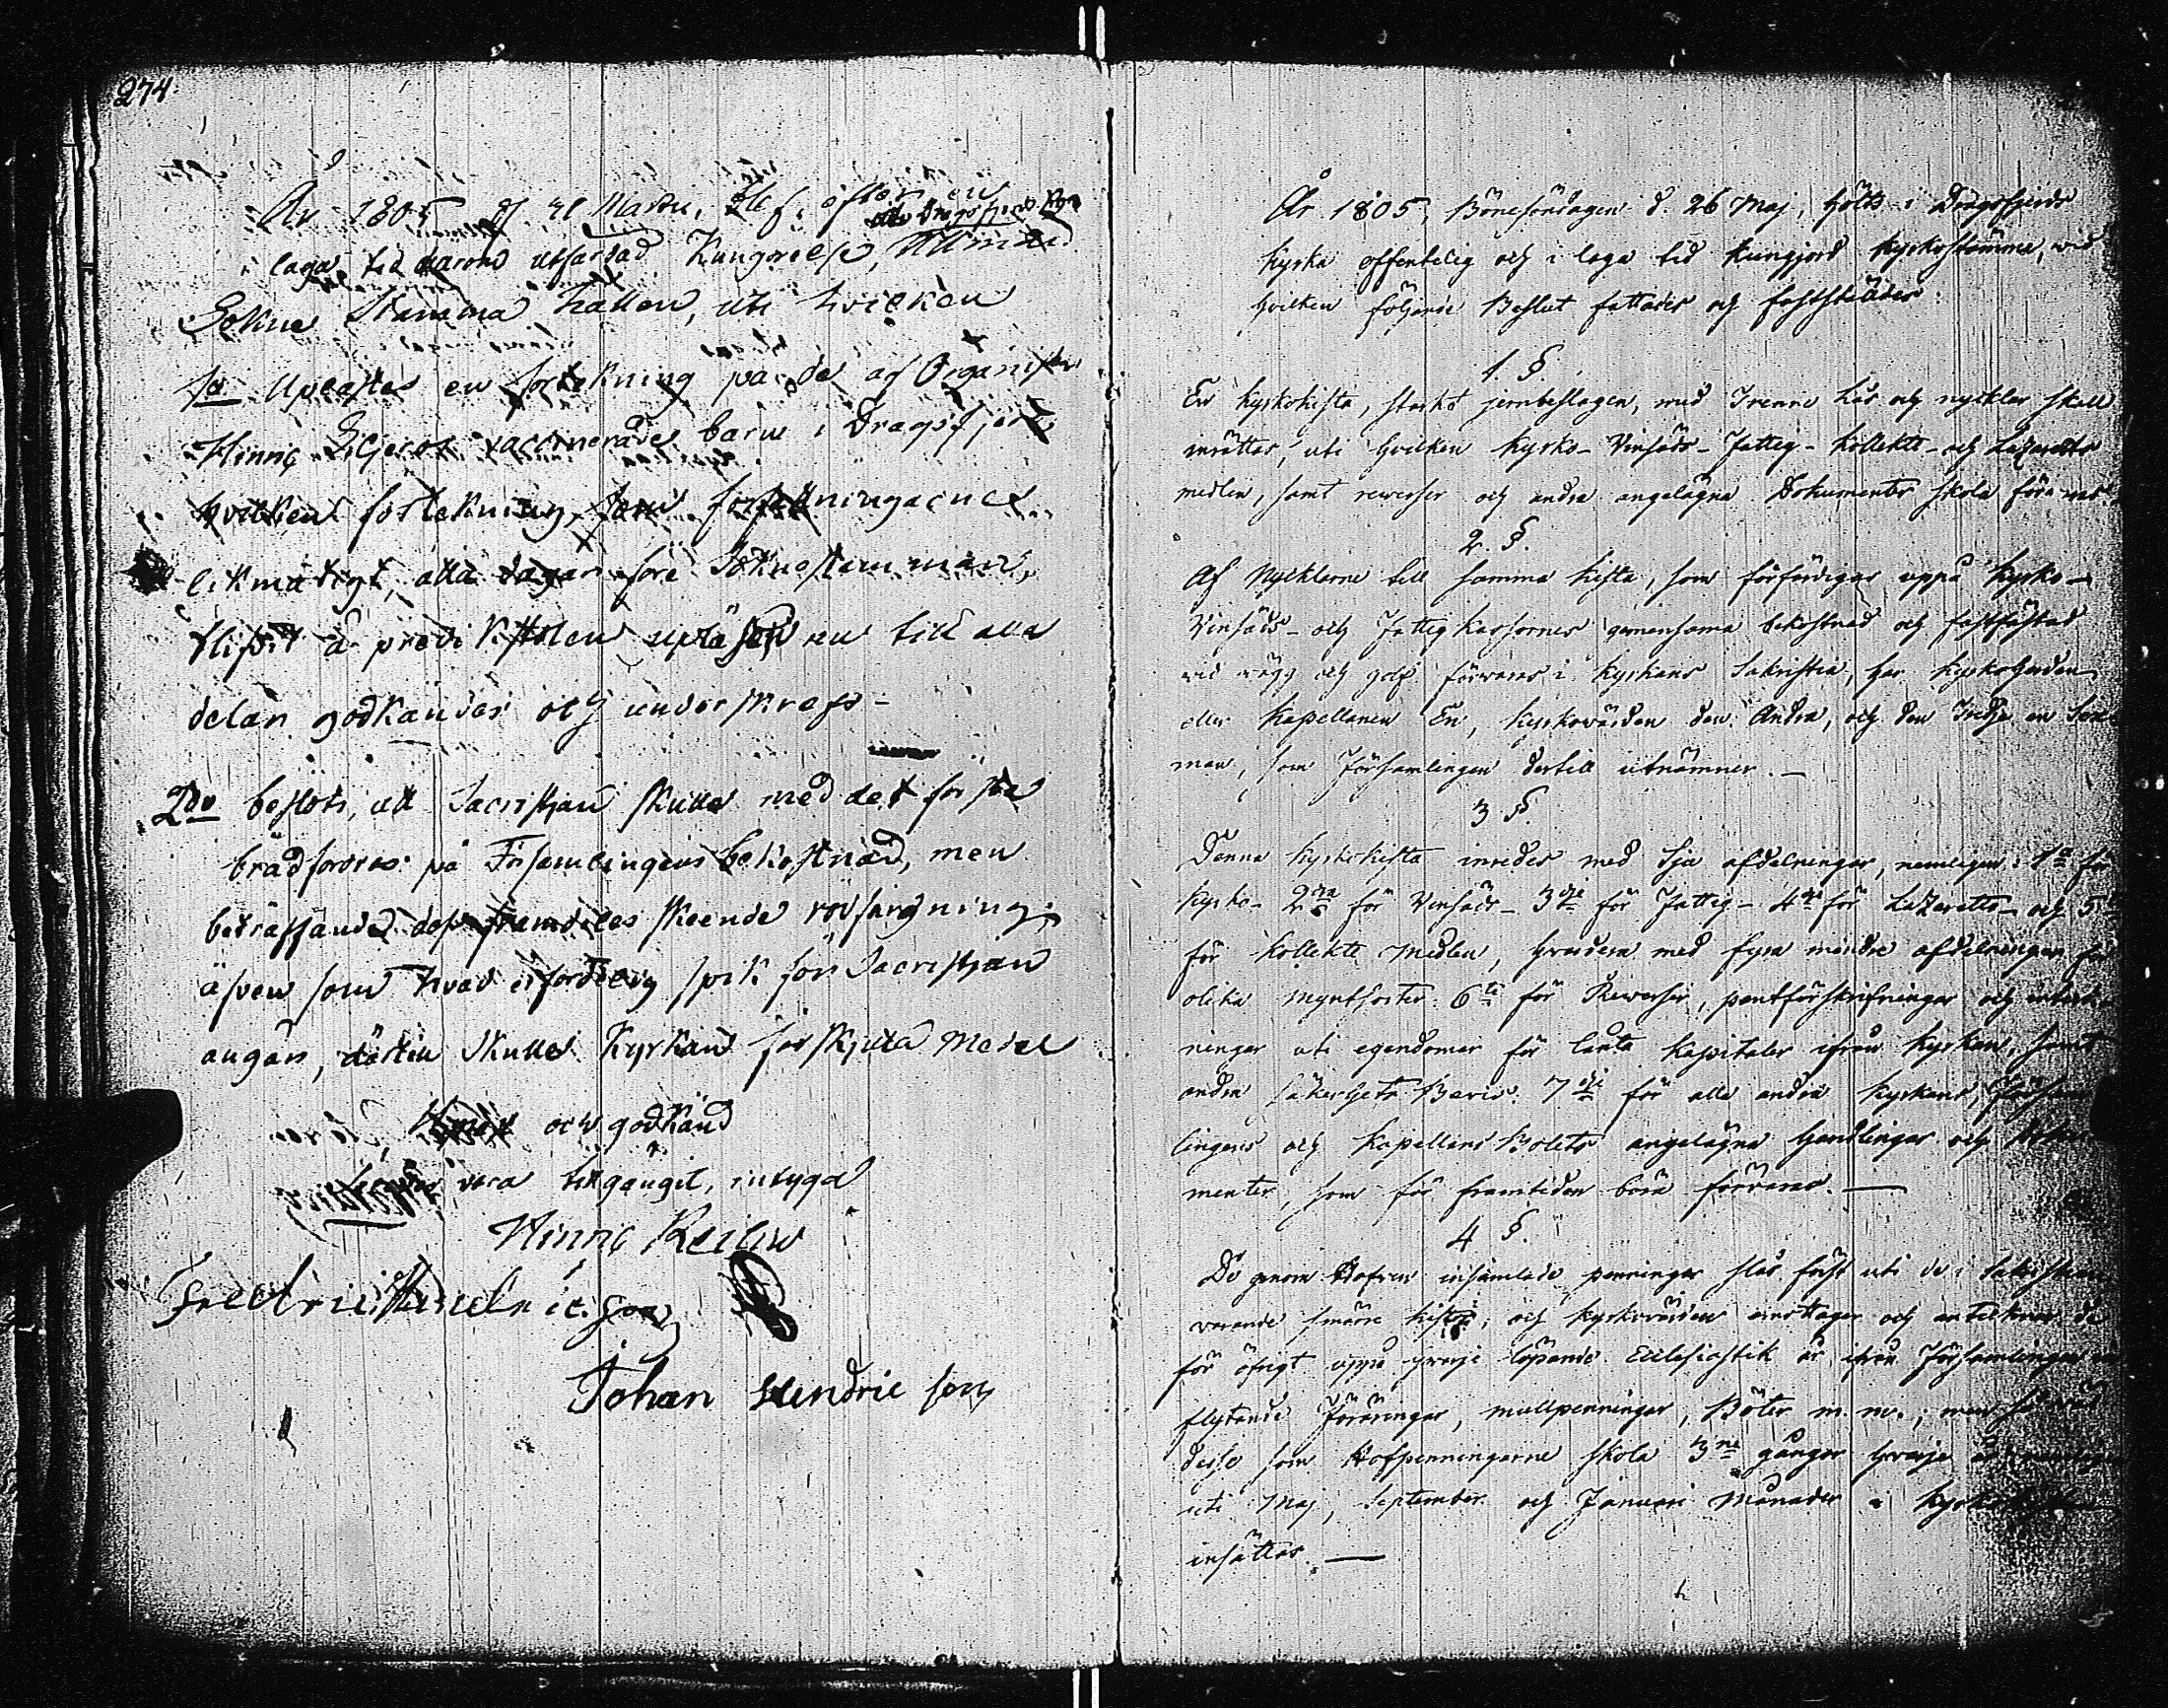 274.
År 1805 d. 31 Martii, blef, efter en
laga tid därom utfärdad Kungörelse, Allmän
Sokne Stämma hållen, uti hvilken
1o Uplästes en förtekning på de af Organisten
Hinric Siljeros vaccinerade barn i Dragsfjerd,
hvilken förtekning, som författningarne
likmätigt, åtta dagar före Soknestämman,
blifvit å predikstolen upläsen nu till alla
delar godkändes och underskrefs -
2do beslöts, att Sacristian skulle med det första
brädfodras på Församlingens bekostnad, men
beträffande dess framdeles skeende rödfärgning,
äfven som hvad erforderlig spik för Sacristian
angår, därtill skulle Kyrkan förskjuta Medel
och godkänd
vara tillgångit, intyga
Hinric
Fredric Hendricsson
Johan Hendricsson
År 1805, Bönesöndagen d. 26 Maj, hölts i Dragsfjerds
kyrka offentelig och i laga tid kungjord kyrkostämma, vid
hvilken följande Beslut fattades och fastställdes:
1. §.
En kyrkokista, starkt jernbeslagen, med Trenne Lås och nycklar skall
inrättas, uti hvilken kyrko- Vinsäds- Fattig- kollekte- och Lazaretts
medlen, samt reverser och andra angelägna Dokumenter skola förvaras
2. §.
Af Nycklarne till samma kista, som förfärdigas uppå kyrko-
Vinsäds- och Fattigkassornes gemensama bekostnad och fastfästad
vid vägg och golf förvaras i kyrkans Sakristia, har kyrkoherden
eller Kapellanen En, kyrkovärden den Andra, och den Tredje en
man, som Församlingen dertill utnämner. —
3 §.
Denna kyrkokista inredes med Sju afdelningar, nemligen: 1a för
kyrko- 2dra för Vinsäds- 3dje för Fattig- 4de för Lazaretts- och 5te
för kollekte Medlen, hvardera med fyra mindre afdelningar för
olika myntsorter. 6te för Reverser, pantförskrifningar och
ningar uti egendomar för lånta Kapitaler ifrån kyrkan, samt
andra säkerhets Bevis. 7de för alla andra kyrkans, Försam
lingens och Kapellans Bolets angelägna Handlingar och
menter, som för framtiden böra förvaras. —
4 §.
De genom Håfven insamlade penningar slås först uti de i Sakristian
varande smärre kistor, och kyrkovärden emottager och antecknar de
för öfrigt uppå hvarje löpande Ecclesiastik år ifrån Församlingen
flytande Föräringar, mullpenningar, Böter m. m.; men
desse som Håfpenningarne skola 3ne gånger hvarje år,
uti Maj, September och Januari Månader i
insättas. —